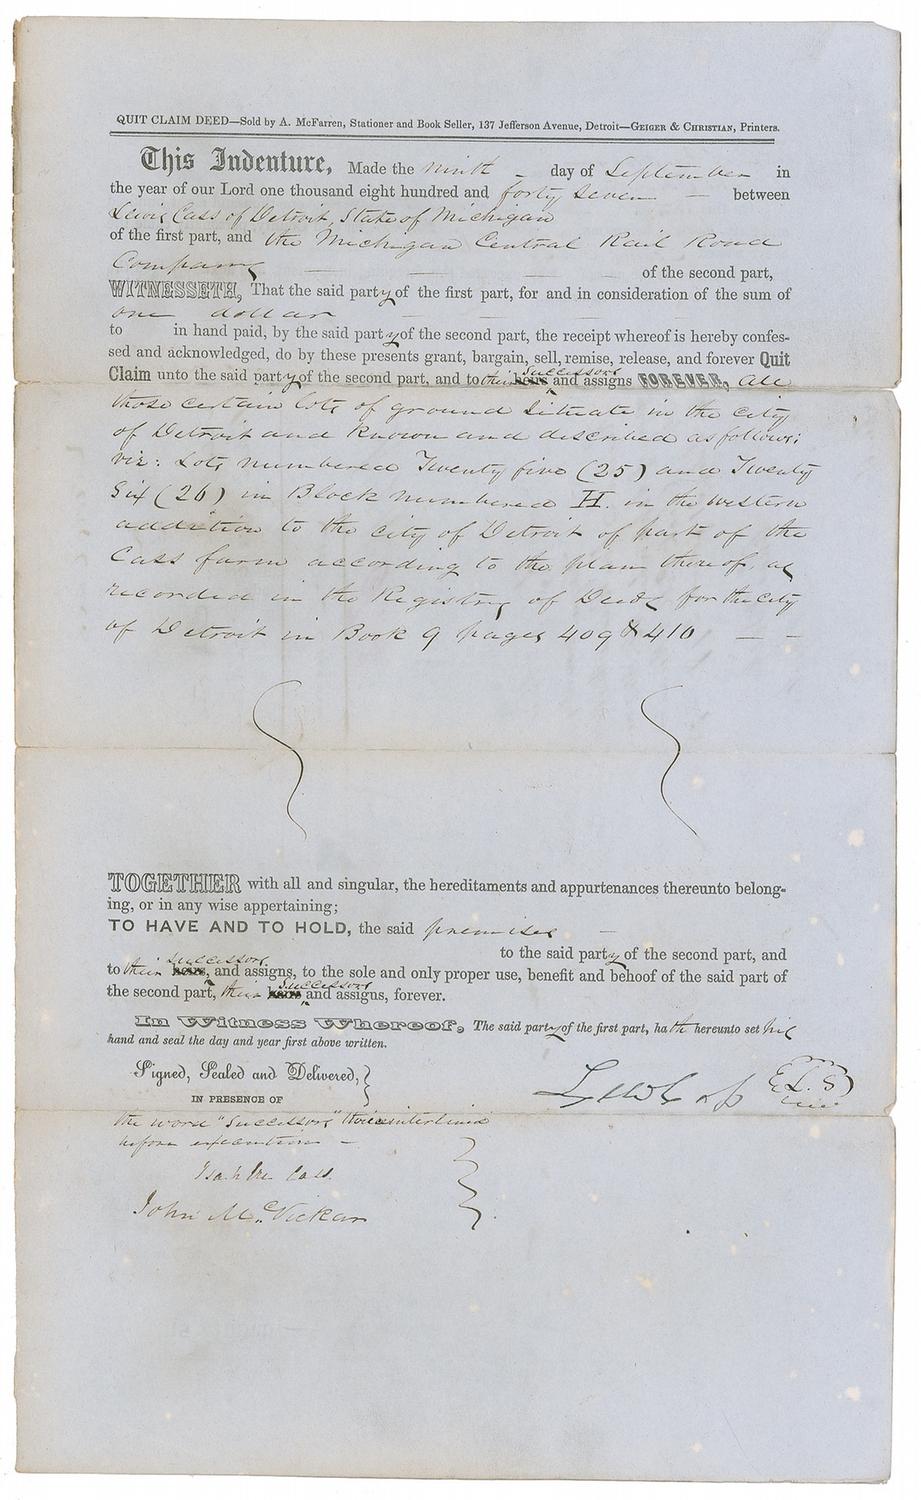 QUIT CLAIM DEED—Sold by A. McFarren, Stationer and Book Seller, 137 Jefferson Avenue, Detroit—GEIGER & CHRISTIAN, Printers.
This Indenture, Made the ninth day of September in
the year of our Lord one thousand eight hundred and forty seven — between
Lewis Cass of Detroit, State of Michigan
of the first part, and the Michigan Central Rail Road
Company — — — — of the second part,
WITNESSETH, That the said party of the first part, for and in consideration of the sum of
one dollar — — —
to in hand paid, by the said party of the second part, the receipt whereof is hereby confes-
sed and acknowledged, do by these presents grant, bargain, sell, remise, release, and forever Quit
successors
Claim unto the said party of the second part, and to their heirs and assigns FOREVER, All
those certain lots of ground situate in the city
of Detroit and known and described as follows;
viz: Lots numbered Twenty five (25) and Twenty
six (26) in Block numbered H. in the western
addition to the city of Detroit of part of the
Cass farm according to the plan thereof, as
recorded in the Registry of Deeds for the city
of Detroit in Book 9 pages 409 & 410 — —
TOGETHER with all and singular, the hereditaments and appurtenances thereunto belong-
ing, or in any wise appertaining;
TO HAVE AND TO HOLD, the said premises —
to the said party of the second part, and
successors
to their heirs, and assigns, to the sole and only proper use, benefit and behoof of the said part of
successors
the second part, their heirs and assigns, forever.
In Witness Whereof, The said party of the first part, hath hereunto set his
hand and seal the day and year first above written.
Signed, Sealed and Delivered,
IN PRESENCE OF
Lew Cass L. S
the word "successors" thrice interlined
before execution —
Cass
John McVickar